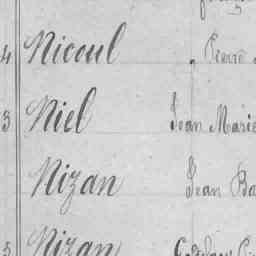 4 Nicoul Pierre
3 Niel Jean Marie
Nizan Jean Ba
3 Nizan